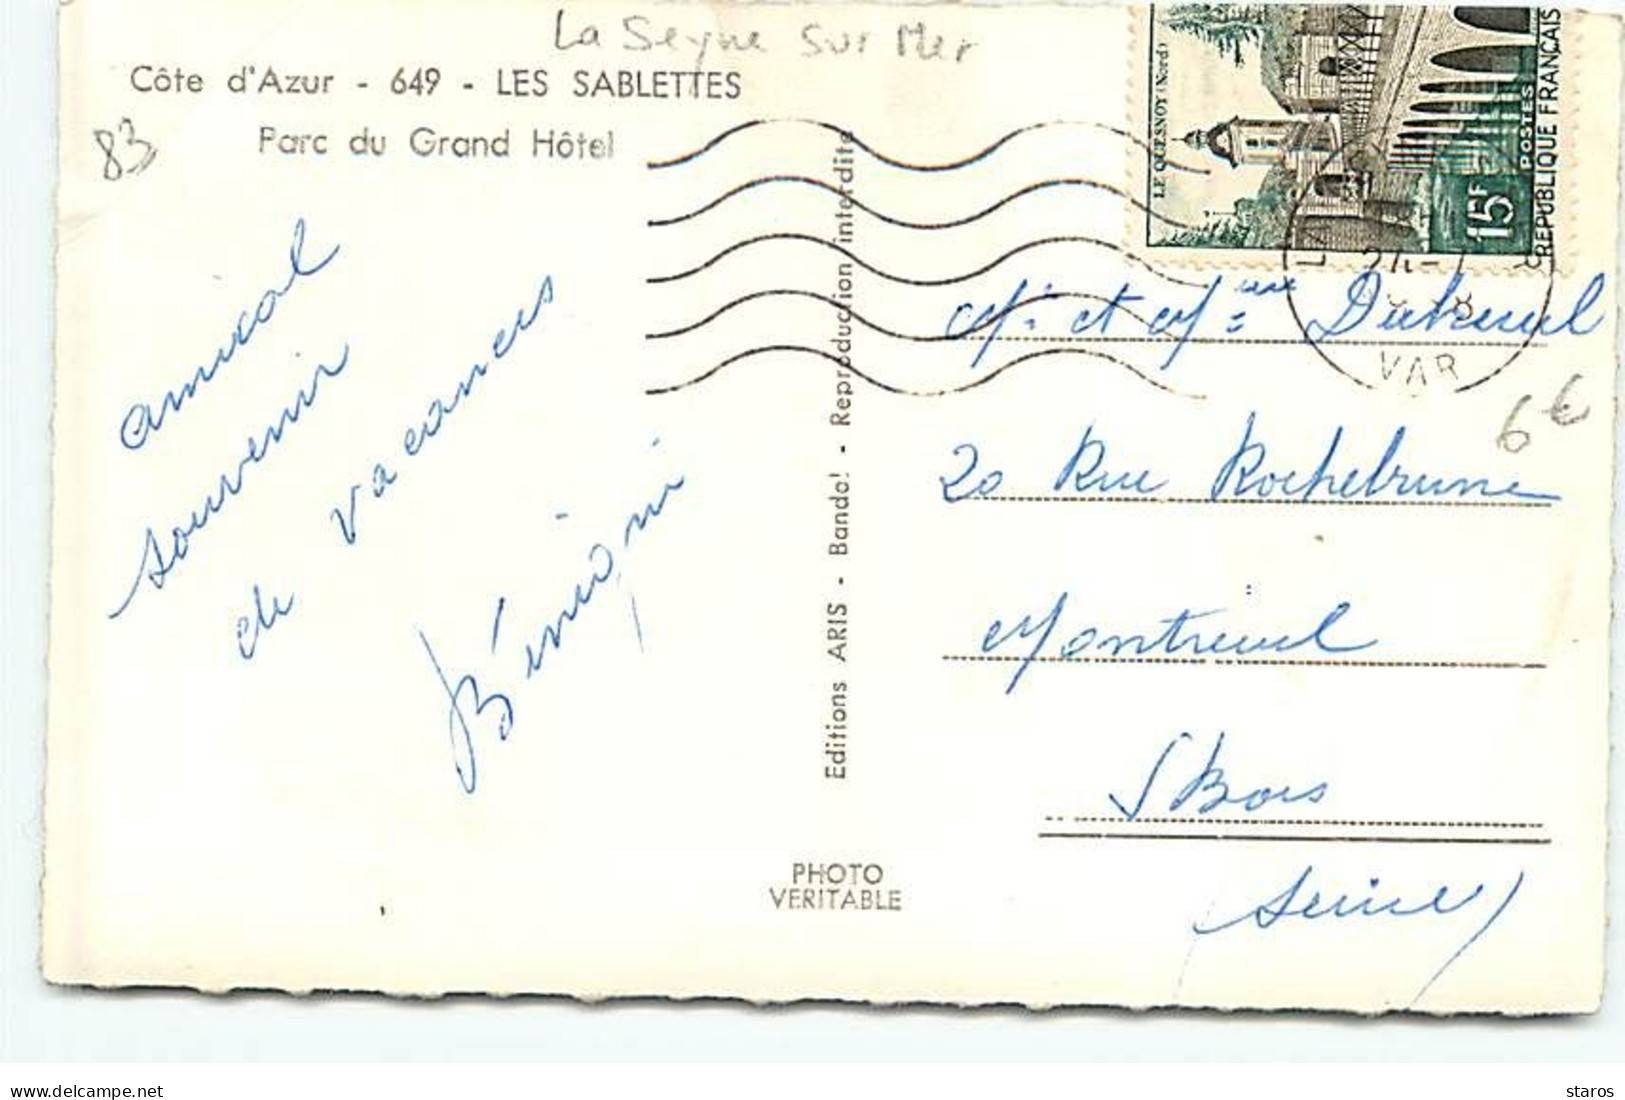 La Seyne sur Mer
Côte d'Azur - 649 - LES SABLETTES
Parc du Grand Hôtel
83
amical
souvenir
de vacances
Bénigni
Editions ARIS - Bandol - Reproduction interdite
PHOTO
VERITABLE
LE QUESNOY (Nord)
15F
POSTES
REPUBLIQUE FRANÇAISE
VAR
Mr et Mme
6€
20 Rue Rochebrune
Montreuil
s/Bois
Seine
Delcampe.net
staros